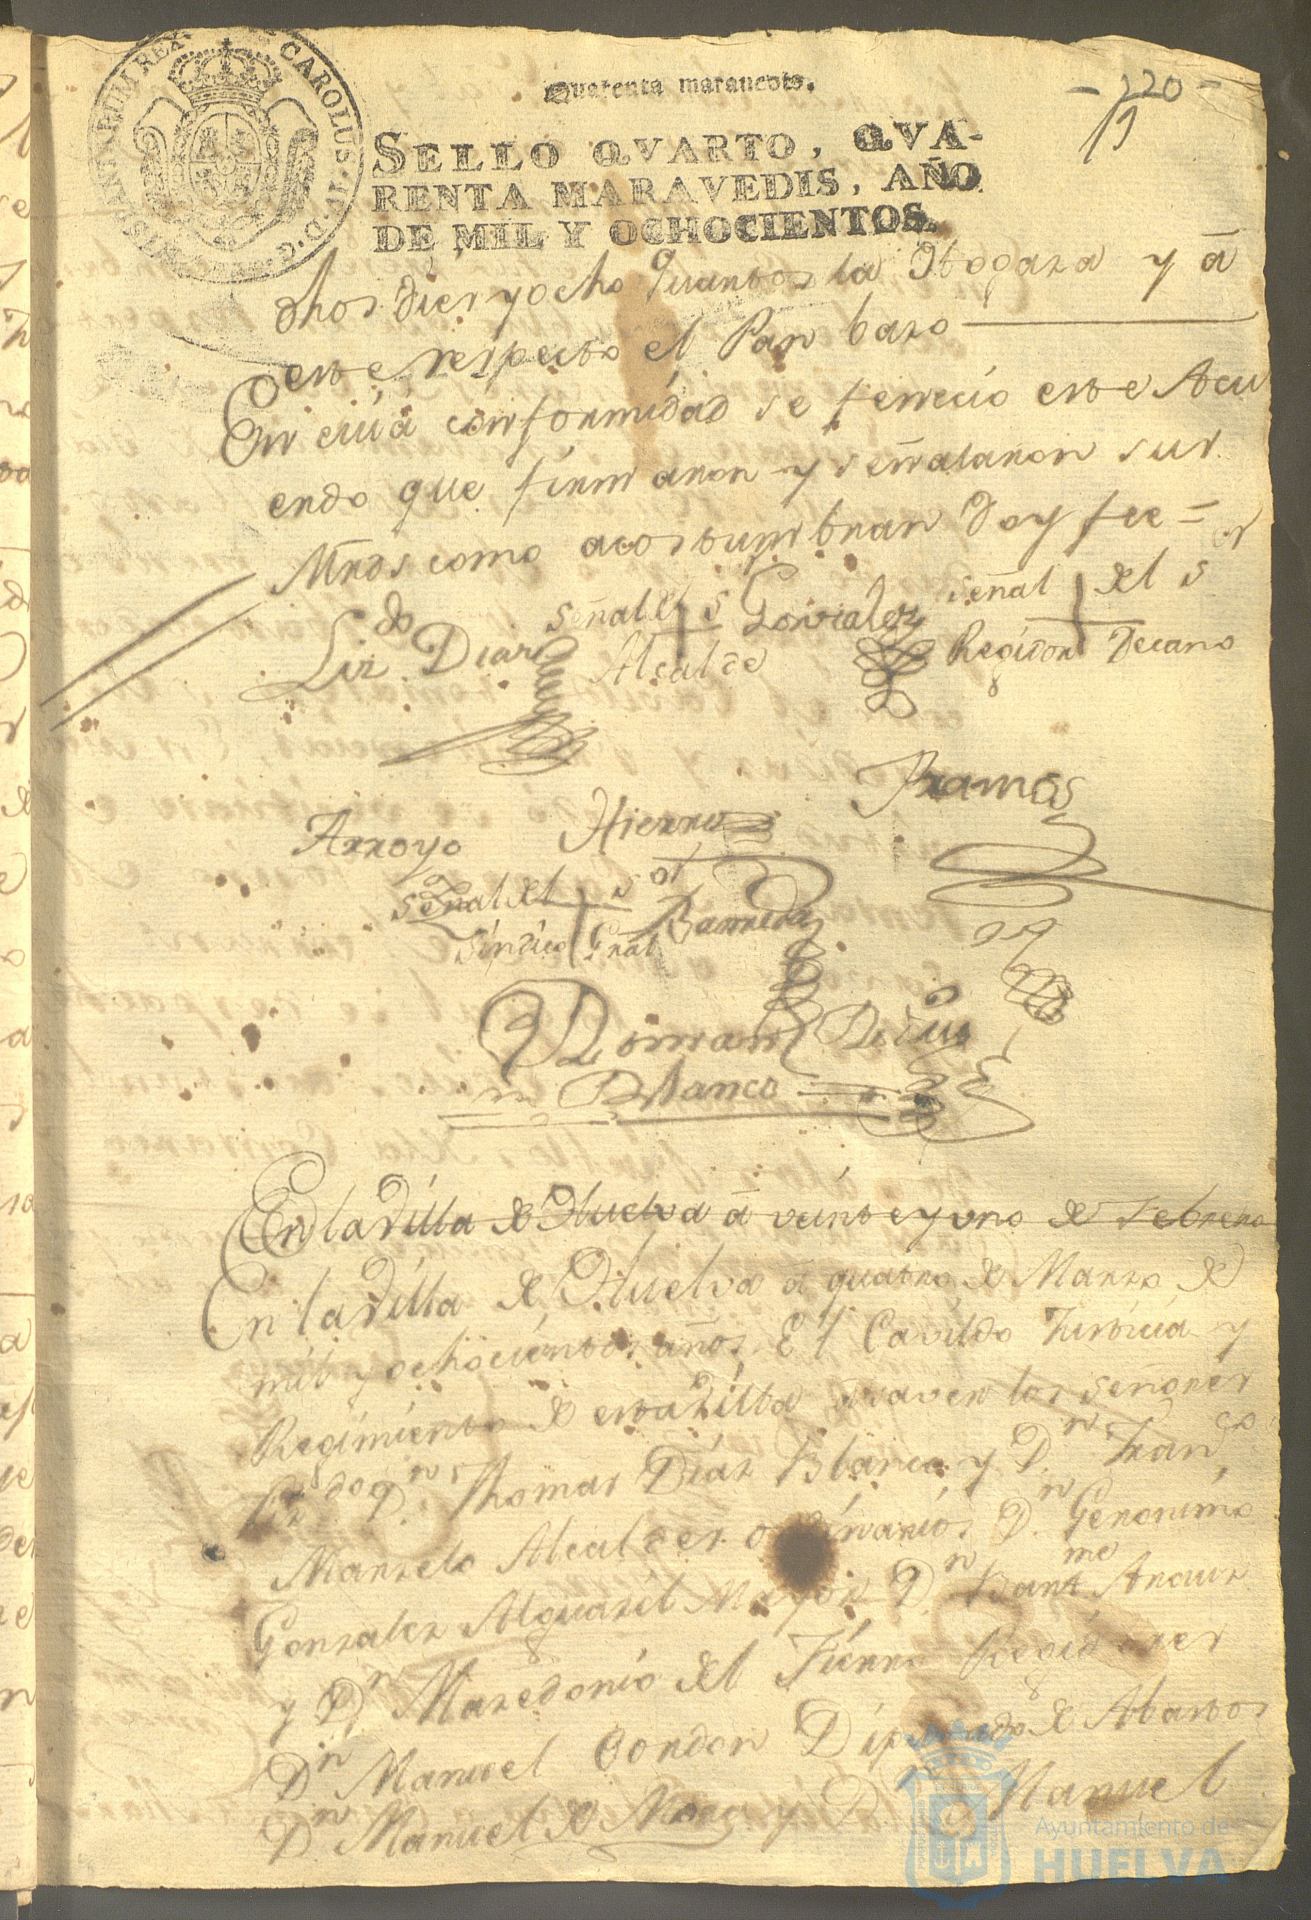 CAROLUS IV D. G. HISPANIARUM REX
Quarenta maravedis.
- 220 -
SELLO QVARTO, QVA-
RENTA MARAVEDIS, AÑO
DE MIL Y OCHOCIENTOS.
dhos dier y ocho quartos la Ibogaza y á
este respecto el Pan bazo
En cuiá conformidad se feneció este Acu
erdo que firmaron y señalaron sus
Mrds como acostumbran doy fee =
Lizdo Diaz
señal del sr Gonzalez
Alcalde
señal del sor
Regidor Decano
Arroyo
Hierro
Ramos
señal del sor
síndico Gral
Barreda
Romam
Blanco
En la Villa de Huelva á veinte y uno de Febrero
En la Villa de Huelva á quatro de Marzo de
mil y ochocientos años. El Cavildo Justicia y
Regimiento de esta Villa á saver los señores
Lizdo Dn Thomas Diaz Blanco y Dn Franco
Manzelo Alcaldes ordinarios Dn Geronimo
Gonzalez Alguazil Mayor Dn Bartme Arauz
y Dn Mazedonio del Fierro Regidores
Dn Manuel Condon Diputado de Abastos
Dn Manuel de Mora y Dn Manuel
Ayuntamiento de
HUELVA